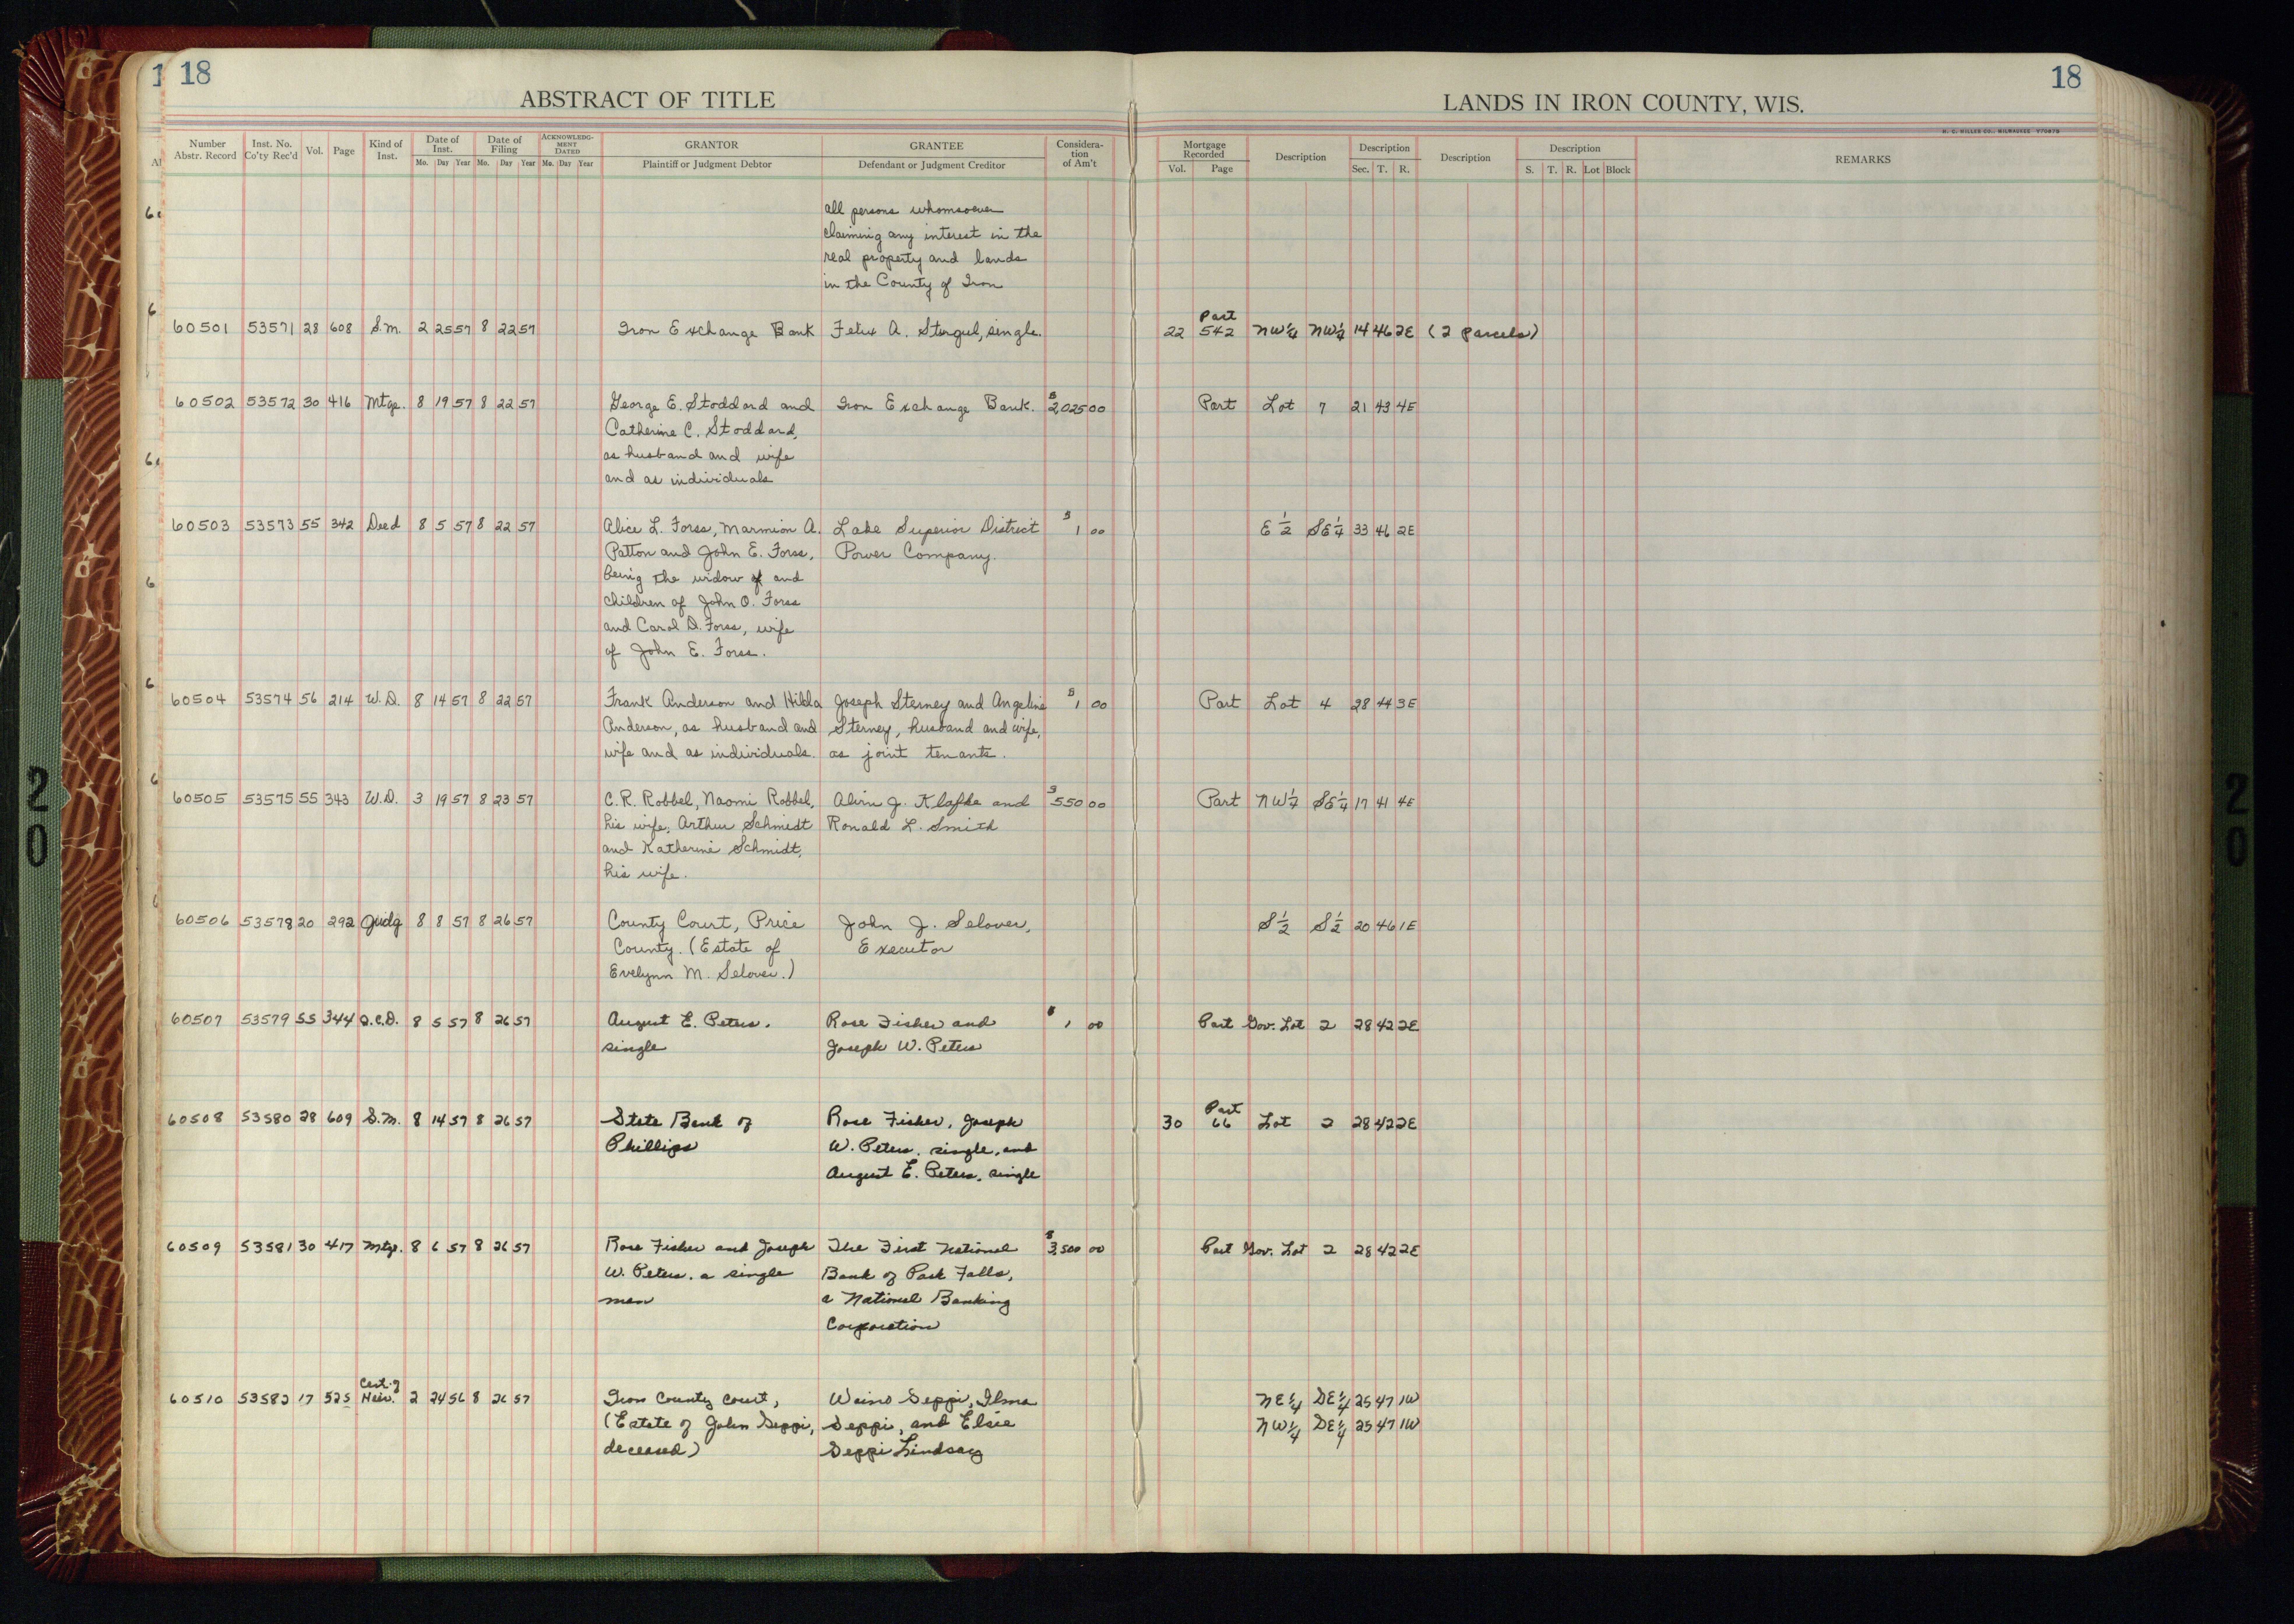 18
ABSTRACT OF TITLE
LANDS IN IRON COUNTY, WIS.
18
H. C. MILLER CO., MILWAUKEE
Number Abstr. Record Inst. No. Co'ty Rec'd Vol. Page Kind of Inst. Date of Inst. Mo. Day Year Date of Filing Mo. Day Year ACKNOWLEDGMENT DATED Mo. Day Year GRANTOR Plaintiff or Judgment Debtor GRANTEE Defendant or Judgment Creditor Considera-tion of Am't Mortgage Recorded Vol. Page Description Description Sec. T. R. Description Description S. T. R. Lot Block REMARKS
all persons whomsoever
claiming any interest in the
real property and lands
in the County of Iron
Part
60501 53571 28 608 S.M. 2 25 57 8 22 57 Iron Exchange Bank Felix A. Stungul, single. 22 542 NW¼ NW¼ 14 46 2E (2 Parcels)
60502 53572 30 416 Mtge. 8 19 57 8 22 57 George E. Stoddard and Iron Exchange Bank. $2,025 00 Part Lot 7 21 43 4E
Catherine C. Stoddard,
as husband and wife
and as individuals
60503 53573 55 342 Deed 8 5 57 8 22 57 Alice L. Forss, Marmion A. Lake Superior District $1 00 E ½ SE ¼ 33 46 2E
Patton and John E. Forss, Power Company.
being the widow and
children of John O. Forss
and Carol D. Forss, wife
of John E. Forss.
60504 53574 56 214 W.D. 8 14 57 8 22 57 Frank Anderson and Hilda Joseph Sterney and Angeline $1 00 Part Lot 4 28 44 3E
Anderson, as husband and Sterney, husband and wife,
wife and as individuals. as joint tenants.
60505 53575 55 343 W.D. 3 19 57 8 23 57 C.R. Robbel, Naomi Robbel, Alvin J. Klafke and $550 00 Part NW¼ SE¼ 17 41 4E
his wife, Arthur Schmidt Ronald L. Smith
and Katherine Schmidt,
his wife.
60506 53578 20 292 Judg 8 8 57 8 26 57 County Court, Price John J. Selover, S ½ S ½ 20 46 1E
County. (Estate of Executor
Evelynn M. Selover.)
60507 53579 55 344 Q.C.D. 8 5 57 8 26 57 August E. Peters, Rose Fisher and $1 00 Part Gov. Lot 2 28 42 2E
single Joseph W. Peters
Part
60508 53580 28 609 S.M. 8 14 57 8 26 57 State Bank of Rose Fisher, Joseph 30 66 Lot 2 28 42 2E
Phillips W. Peters, single, and
August E. Peters, single
60509 53581 30 417 Mtge. 8 6 57 8 26 57 Rose Fisher and Joseph The First National $3,500 00 Part Gov. Lot 2 28 42 2E
W. Peters, a single Bank of Park Falls,
man a National Banking
Corporation
Cert. of
60510 53582 17 525 Heir. 2 24 56 8 26 57 Iron County Court, Waino Seppi, Ilma NE¼ SE¼ 25 47 1W
(Estate of John Seppi, Seppi, and Elsie NW¼ SE¼ 25 47 1W
deceased) Seppi Lindsay
20
20